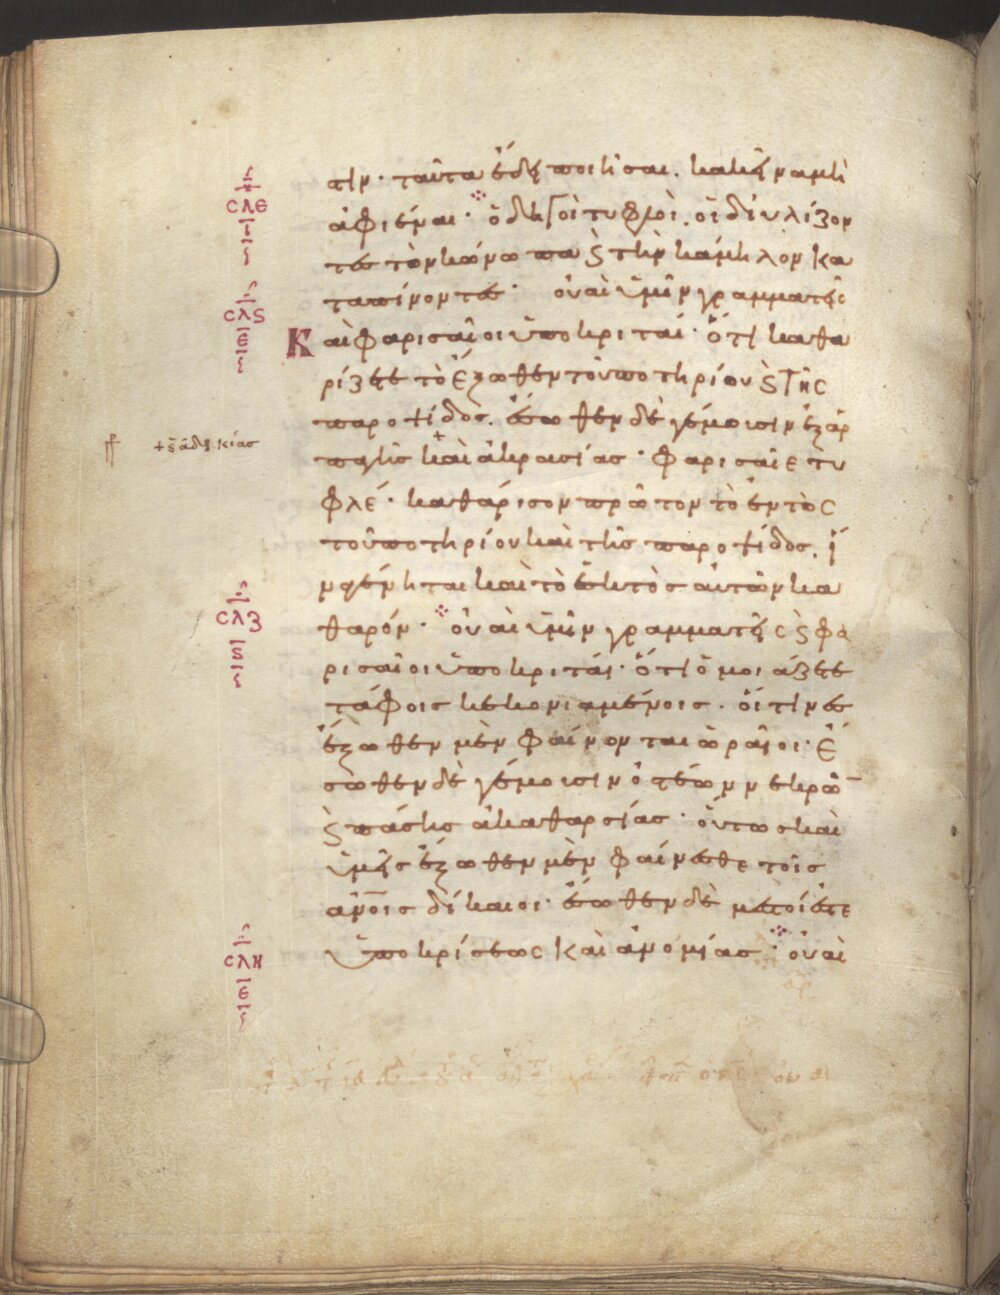 τιν· ταῦτα ἔδει ποιῆσαι. κἀκεῖνα μὴ
ἀφιέναι· ὁδηγοὶ τυφλοὶ. οἱ διϋλίζον
τες τὸν κώνωπα ϗ τὴν κάμηλον κα
ταπίνοντες· οὐαὶ ὑμῖν γραμματεῖς
Καὶ φαρισαῖοι ὑποκριταί· ὅτι καθα
ρίζετε τὸ ἔξωθεν τοῦ ποτηρίου ϗ τῆς
παροψίδος. ἔσωθεν δὲ γέμουσιν ἐξ ἁρ
παγῆς καὶ ἀκρασίας· φαρισαῖε τυ
φλέ· καθάρισον πρῶτον τὸ ἐντὸς
τοῦ ποτηρίου καὶ τῆς παροψίδος. ἵ
να γένηται καὶ τὸ ἐκτὸς αὐτῶν κα
θαρόν· οὐαὶ ὑμῖν γραμματεῖς ϗ φα
ρισαῖοι ὑποκριταί· ὅτι ὁμοιάζετε
τάφοις κεκονιαμένοις. οἵτινες
ἔξωθεν μὲν φαίνονται ὡραῖοι· ἔ
σωθεν δὲ γέμουσιν ὀστέων νεκρῶ̅
ϗ πάσης ἀκαθαρσίας· οὕτως καὶ
ὑμεῖς ἔξωθεν μὲν φαίνεσθε τοῖς
ἀν̅οις δίκαιοι· ἔσωθεν δὲ μεστοί ἐστε
ὑποκρίσεως καὶ ἀνομίας· οὐαὶ
σλε
ι
σλς
ε
+ ϗ ἀδικίας
σλζ
ε
σλη
ε